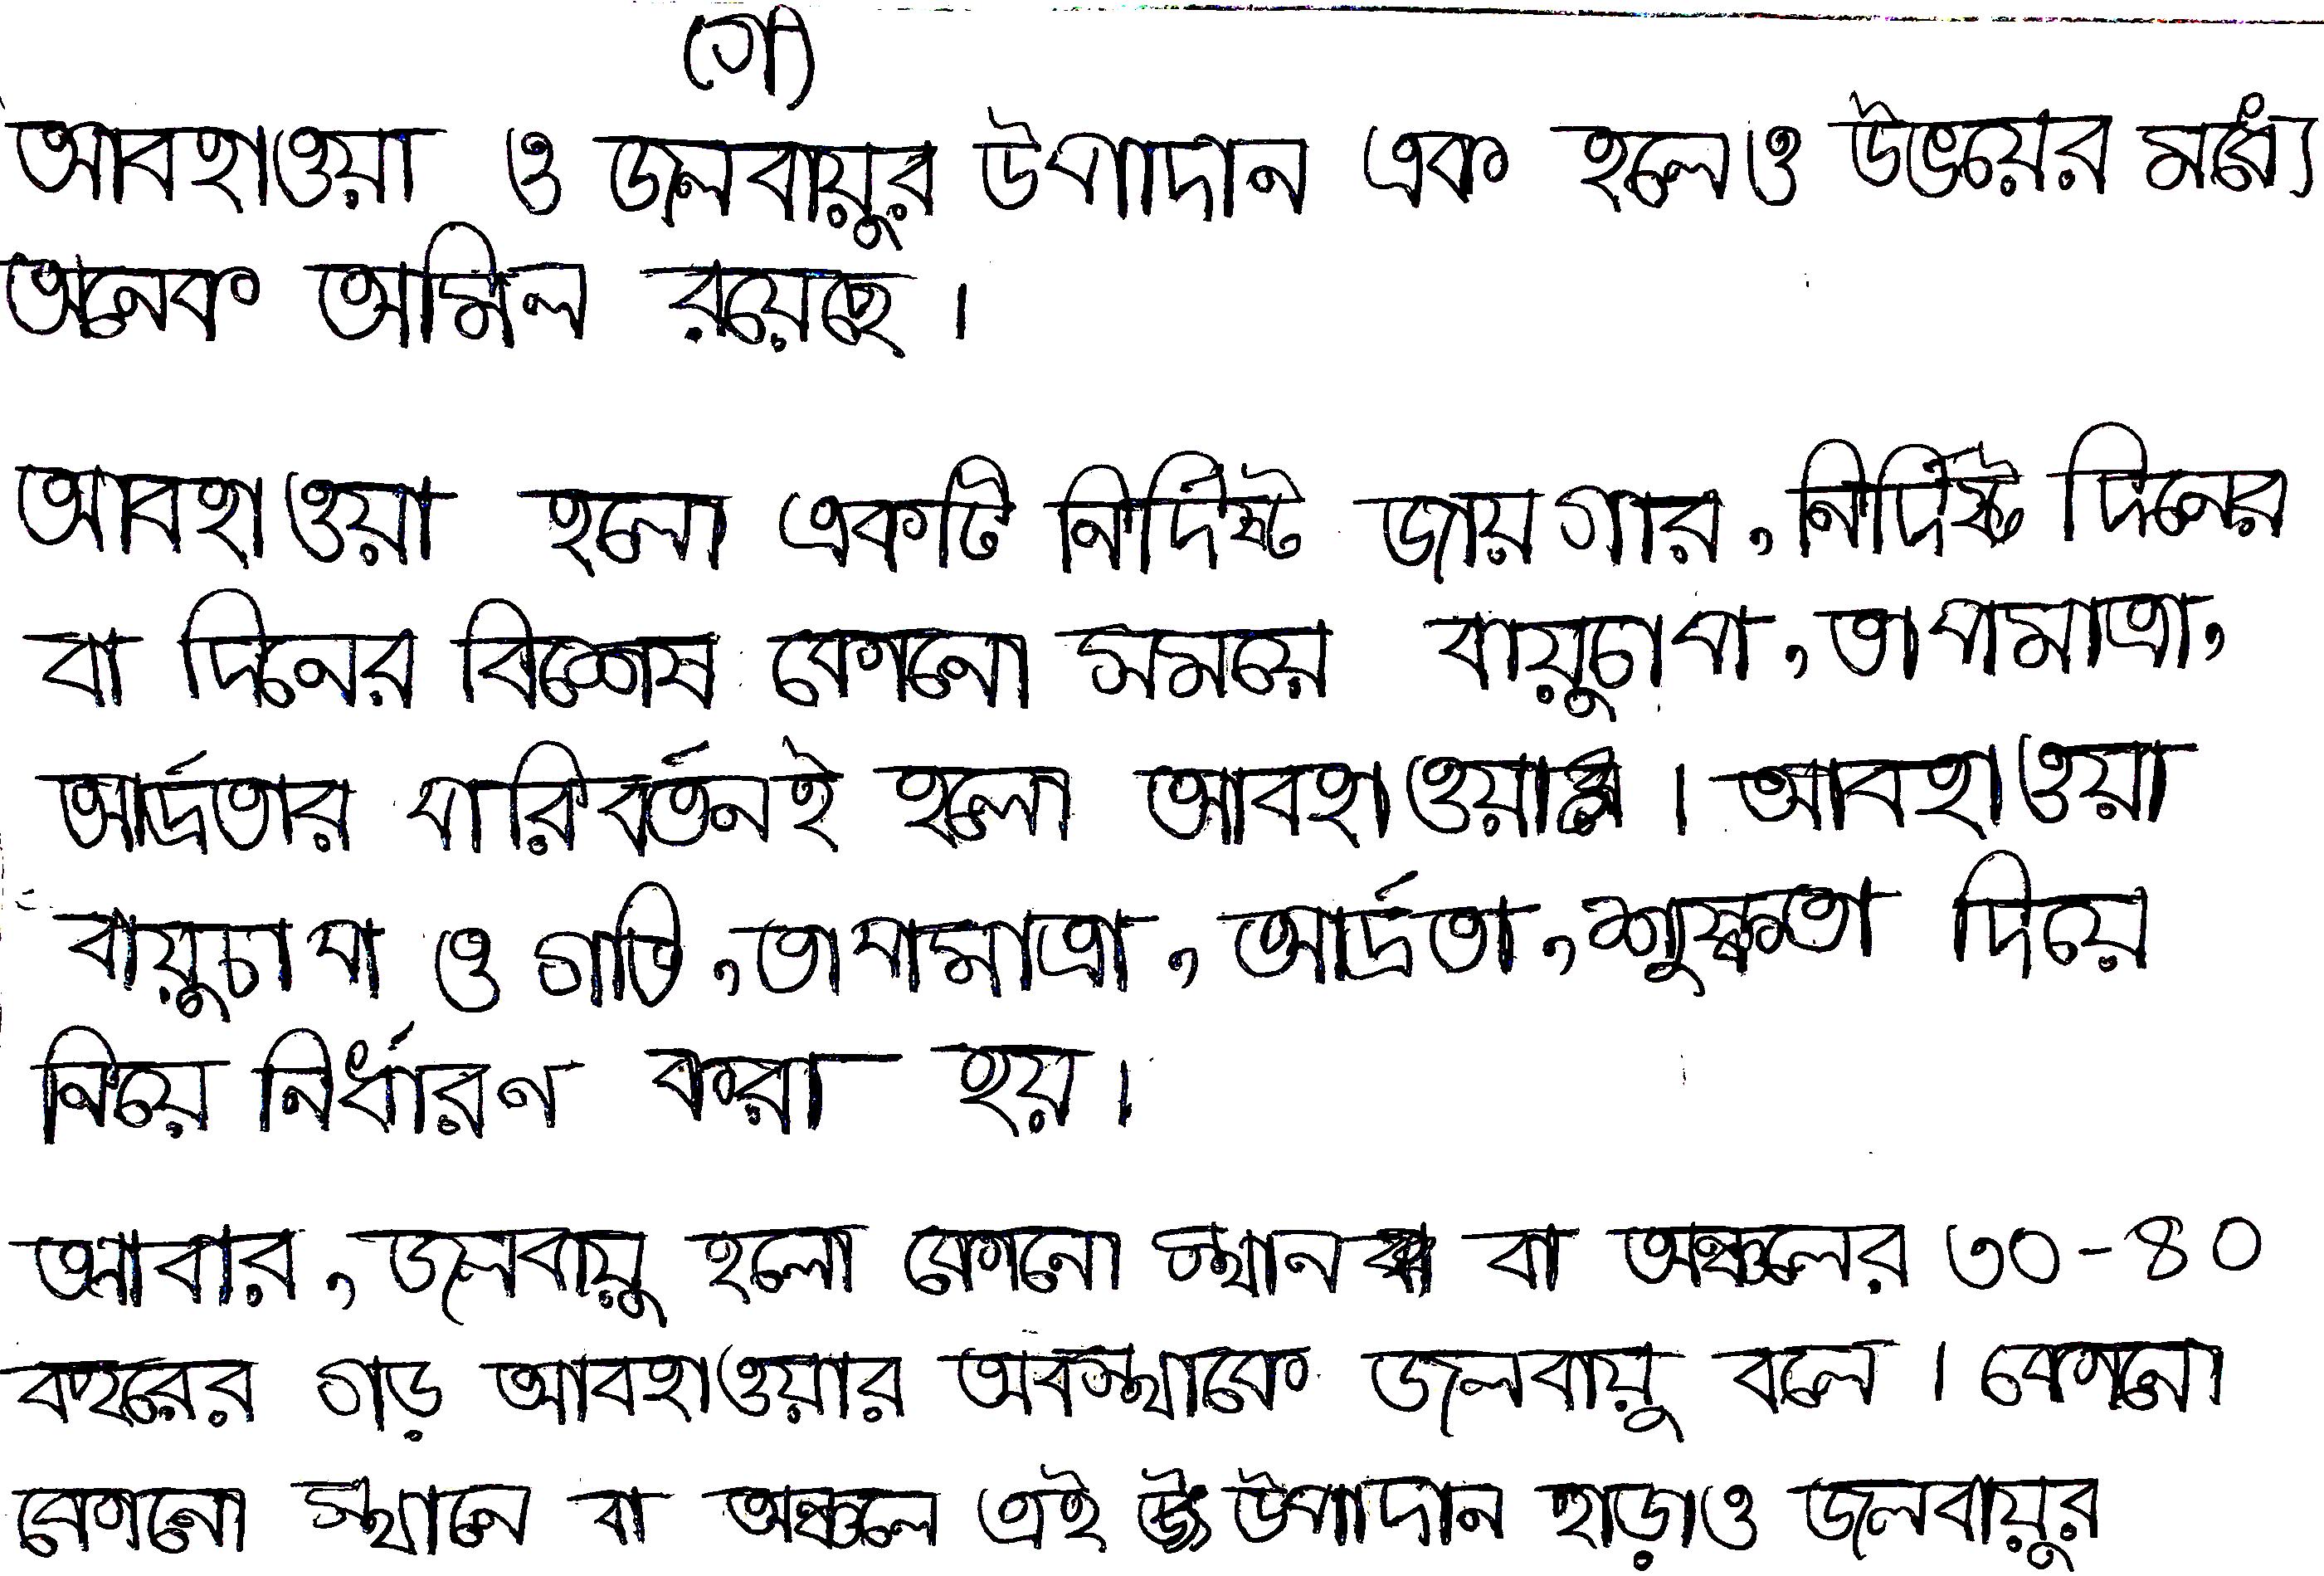 (গ)
আবহাওয়া ও জলবায়ুর উপাদান এক হলেও উভয়ের মধ্যে
অনেক অমিল রয়েছে।
আবহাওয়া হলো একটি নির্দিষ্ট জায়গার, নির্দিষ্ট দিনের
বা দিনের বিশেষ কোনো সময়ে বায়ুচাপ, তাপমাত্রা,
আর্দ্রতার পরিবর্তনই হলো আবহাওয়া। আবহাওয়া
বায়ুচাপ ও গতি, তাপমাত্রা, আর্দ্রতা, শুষ্কতা দিয়ে
নিয়ে নির্ধারন করা হয়।
আবার, জলবায়ু হলো কোনো স্থান বা অঞ্চলের ৩০-৪০
বছরের গড় আবহাওয়ার অবস্থাকে জলবায়ু বলে। কোনো
কোনো স্থানে বা অঞ্চলে এই উপাদান ছাড়াও জলবায়ুর